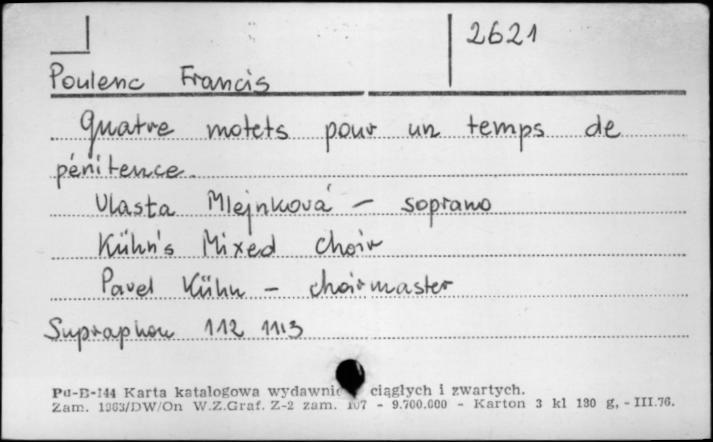 2621
Poulenc Francis
Quatre motets pour un temps de
pénitence.
Vlasta Mlejnková - soprano
Kühn's Mixed Choir
Pavel Kühn - choirmaster
Supraphon 112 1113
Pu-B-144 Karta katalogowa wydawnic ciągłych i zwartych.
Zam. 1963/DW/On W.Z.Graf. Z-2 zam. 107 - 9.700.000 - Karton 3 kl 180 g, - III.76.